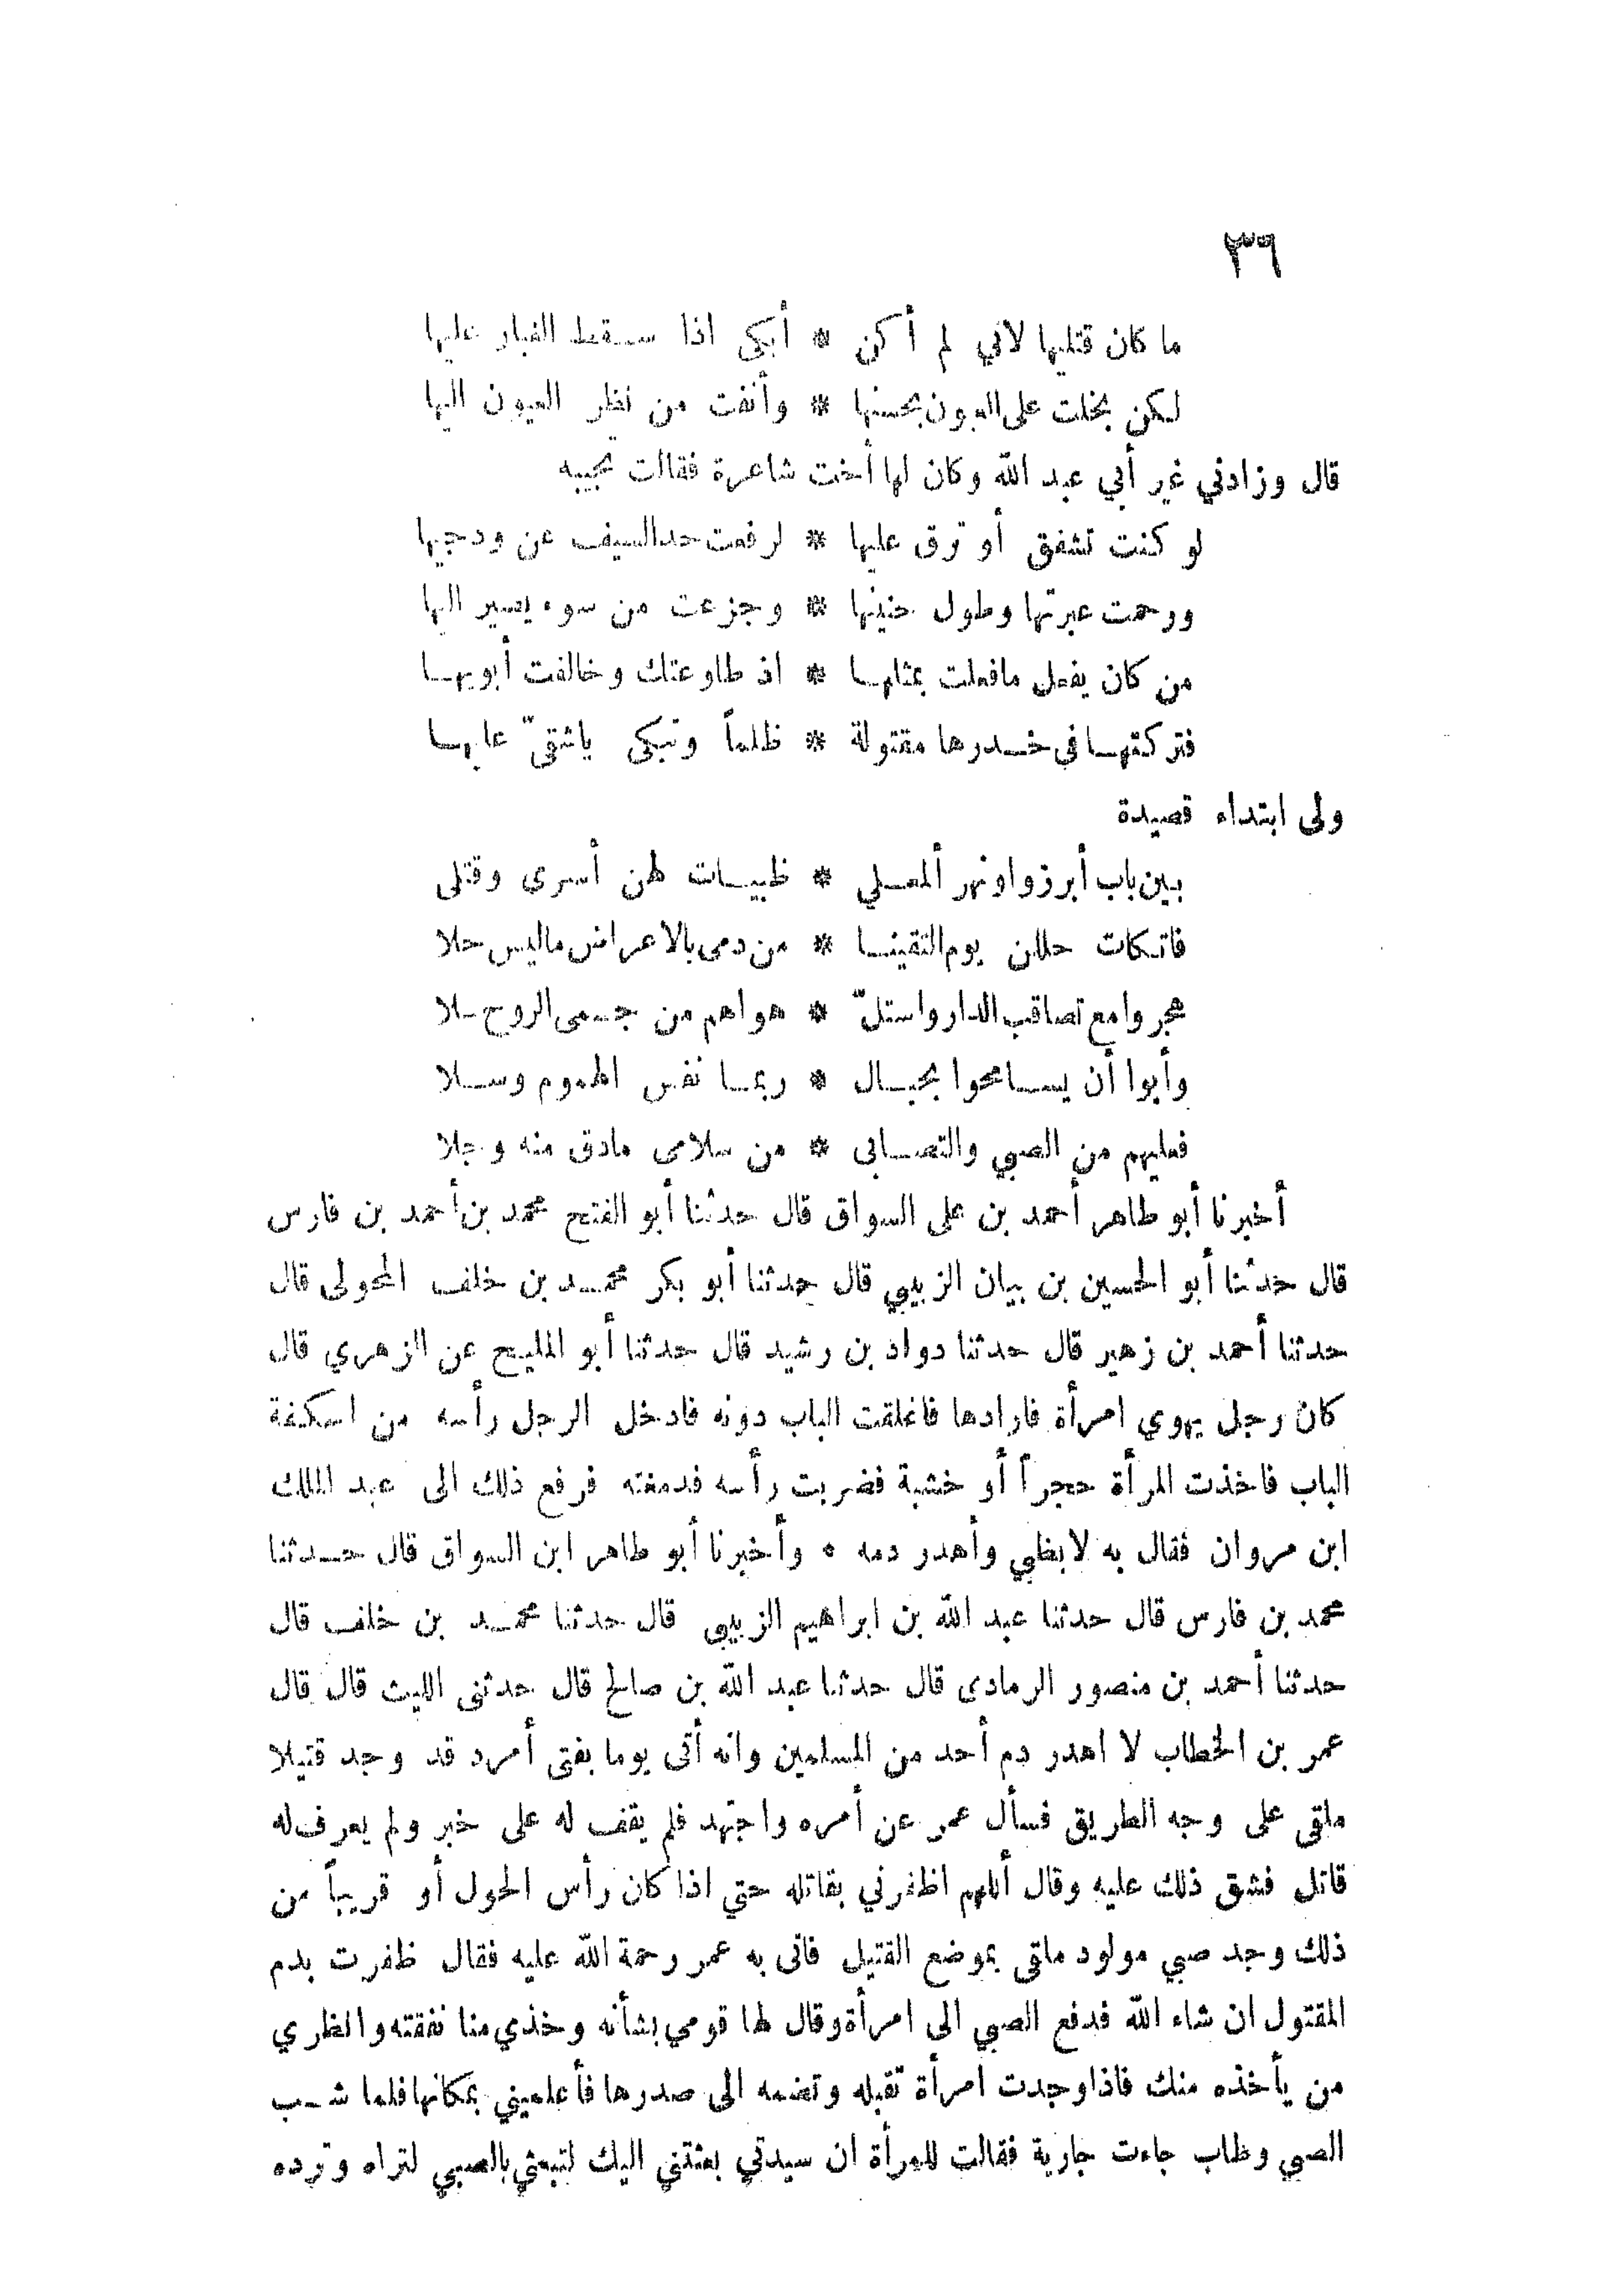 ٣٦
ما كان قتليها لاني لم أكن * أبكي اذا سقط الغبار عليها
لكن بخلت على العيون بحسنها * وأنفت من نظر العيون اليها
قال وزادني غير أبي عبد الله وكان لها أخت شاعرة فقالت تجيبه
لو كنت تشفق أو ترق عليها * لرفعت حد السيف عن ودجيها
ورحمت عبرتها وطول حنينها * وجزعت من سوء يصير اليها
من كان يفعل مافعلت بمثلها * اذ طاوعتك وخالفت أبويها
فتركتها في خدرها مقتولة * ظلماً وتبكى ياشقىّ عليها
ولى ابتداء قصيدة
بين باب أبرزوا ونهر ألمعلي * ظبيات لهن أسرى وقتلى
فاتكات حللن يوم التقينا * من دمى بالاعراض ماليس حلا
هجروا مع تصاقب الدار واستلّ * هواهم من جسمى الروح سلا
وأبوا أن يسامحوا بخيال * ربما نفس الهموم وسلا
فعليهم من الصبي والتصابى * من سلامى مادق منه وجلا
أخبرنا أبو طاهر أحمد بن على السواق قال حدثنا أبو الفتح محمد بن أحمد بن فارس
قال حدثنا أبو الحسين بن بيان الزبيبي قال حدثنا أبو بكر محمد بن خلف المحولى قال
حدثنا أحمد بن زهير قال حدثنا دواد بن رشيد قال حدثنا أبو المليح عن الزهري قال
كان رجل يهوي امرأة فارادها فاغلقت الباب دونه فادخل الرجل رأسه من اسكفة
الباب فاخذت المرأة حجراً أو خشبة فضربت رأسه فدمغته فرفع ذلك الى عبد الملك
ابن مروان فقال به لابظبي وأهدر دمه ٠ وأخبرنا أبو طاهر ابن السواق قال حدثنا
محمد بن فارس قال حدثنا عبد الله بن ابراهيم الزبيبى قال حدثنا محمد بن خلف قال
حدثنا أحمد بن منصور الرمادى قال حدثنا عبد الله بن صالح قال حدثنى الليث قال قال
عمر بن الخطاب لا اهدر دم أحد من المسلمين وانه أتى يوما بفتى أمرد قد وجد قتيلا
ملقى على وجه الطريق فسأل عمر عن أمره واجتهد فلم يقف له على خبر ولم يعرف له
قاتل فشق ذلك عليه وقال أللهم اظفرني بقاتله حتي اذا كان رأس الحول أو قريباً من
ذلك وجد صبي مولود ملقى بموضع القتيل فاتى به عمر رحمة الله عليه فقال ظفرت بدم
المقتول ان شاء الله فدفع الصبي الى امرأة وقال لها قومي بشأنه وخذي منا نفقته وانظري
من يأخذه منك فاذا وجدت امرأة تقبله وتضمه الى صدرها فأعلميني بمكانها فلما شب
الصبي وطاب جاءت جارية فقالت للمرأة ان سيدتي بعثتني اليك لتبعثي بالصبي لتراه وترده